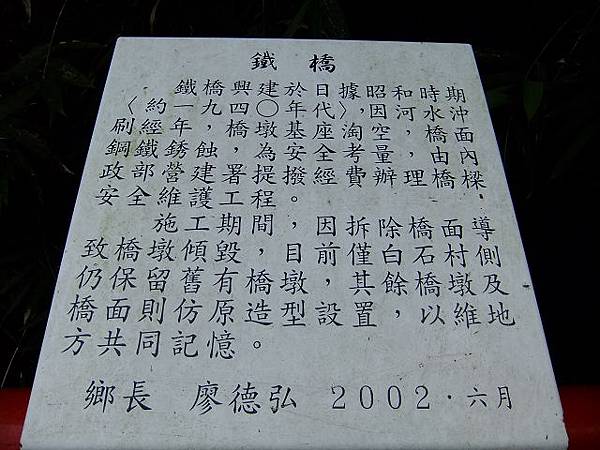 鐵橋
鐵橋興建於日據昭和時期
〈約一九四〇年代〉，因河水沖
刷經年，橋墩基座淘空，橋面
鋼鐵銹蝕，為安全考量由內
政部營建署提撥經費辦理橋樑
安全維護工程。
施工期間，因拆除橋面導
致橋墩傾毀，目前僅白石村側
仍保留舊有橋墩，其餘橋墩及
橋面則仿原造型設置，以維地
方共同記憶。
鄉長 廖德弘 2002．六月